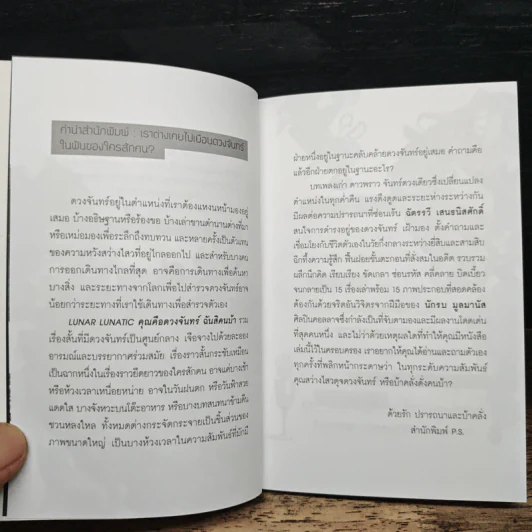 คำนำสำนักพิมพ์ : เราต่างเคยไปเยือนดวงจันทร์
ในฝันของใครสักคน?
ดวงจันทร์อยู่ในตำแหน่งที่เราต้องแหงนหน้ามองอยู่
เสมอ บ้างอธิษฐานหรือร้องขอ บ้างเล่าขานตำนานต่างที่มา
หรือเหม่อมองเพื่อระลึกถึงทบทวน และหลายครั้งเป็นตัวแทน
ของความหวังสว่างไสวที่อยู่ไกลออกไป และสำหรับบางคน
การออกเดินทางไกลที่สุด อาจคือการเดินทางเพื่อค้นหา
บางสิ่ง และระยะทางจากโลกเพื่อไปสำรวจดวงจันทร์อาจ
น้อยกว่าระยะทางที่เราใช้เดินทางเพื่อสำรวจตัวเอง
LUNAR LUNATIC คุณคือดวงจันทร์ ฉันสิคนบ้า รวม
เรื่องสั้นที่มีดวงจันทร์เป็นศูนย์กลาง เจือจางไปด้วยละออง
อารมณ์และบรรยากาศร่วมสมัย เรื่องราวสั้นกระชับเหมือน
เป็นฉากหนึ่งในเรื่องราวยืดยาวของใครสักคน อาจแค่บางเช้า
หรือห้วงเวลาเหนื่อยหน่าย อาจในวันฝนตก หรือวันฟ้าสวย
แดดใส บางจังหวะบนโต๊ะอาหาร หรือบางบทสนทนาข้ามคืน
ชวนหลงใหล ทั้งหมดต่างกระจัดกระจายเป็นชิ้นส่วนของ
ภาพขนาดใหญ่ เป็นบางห้วงเวลาในความสัมพันธ์ที่มักมี
ฝ่ายหนึ่งอยู่ในฐานะคลับคล้ายดวงจันทร์อยู่เสมอ คำถามคือ
แล้วอีกฝ่ายตกอยู่ในฐานะอะไร?
บทเพลงเก่า ดาวพราว จันทร์ดวงเดียวซึ่งเปลี่ยนแปลง
ตำแหน่งไปทุกค่ำคืน แรงดึงดูดและระยะห่างระหว่างกัน
มีผลต่อความปรารถนาที่ซ่อนเร้น ฉัตรรวี เสนธนิสศักดิ์
สนใจการดำรงอยู่ของดวงจันทร์ เฝ้ามอง ตั้งคำถามและ
เชื่อมโยงกับชีวิตตัวเองในวัยกึ่งกลางระหว่างยี่สิบและสามสิบ
อีกทั้งความรู้สึก ฟื้นฝอยขั้นตะกอนที่สั่งสมในอดีต รวบรวม
ผลึกนึกคิด เรียบเรียง ขัดเกลา ซ่อนรหัส คลี่คลาย บิดเบี้ยว
จนกลายเป็น 15 เรื่องเล่าพร้อม 16 ภาพประกอบที่สอดคล้อง
ต้องกันด้วยจริตอันวิจิตรจากฝีมือของ นักรบ มูลมานัส
ศิลปินคอลลาจซึ่งกำลังเป็นที่จับตามองและมีผลงานโดดเด่น
ที่สุดคนหนึ่ง และไม่ว่าด้วยเหตุผลใดที่ทำให้คุณมีหนังสือ
เล่มนี้ไว้ในครอบครอง เราอยากให้คุณได้อ่านและถามตัวเอง
ทุกครั้งที่พลิกหน้ากระดาษว่า ในทุกระดับความสัมพันธ์
คุณสว่างไสวดุจดวงจันทร์ หรือบ้าคลั่งดั่งคนบ้า?
ด้วยรัก ปรารถนาและบ้าคลั่ง
สำนักพิมพ์ P.S.